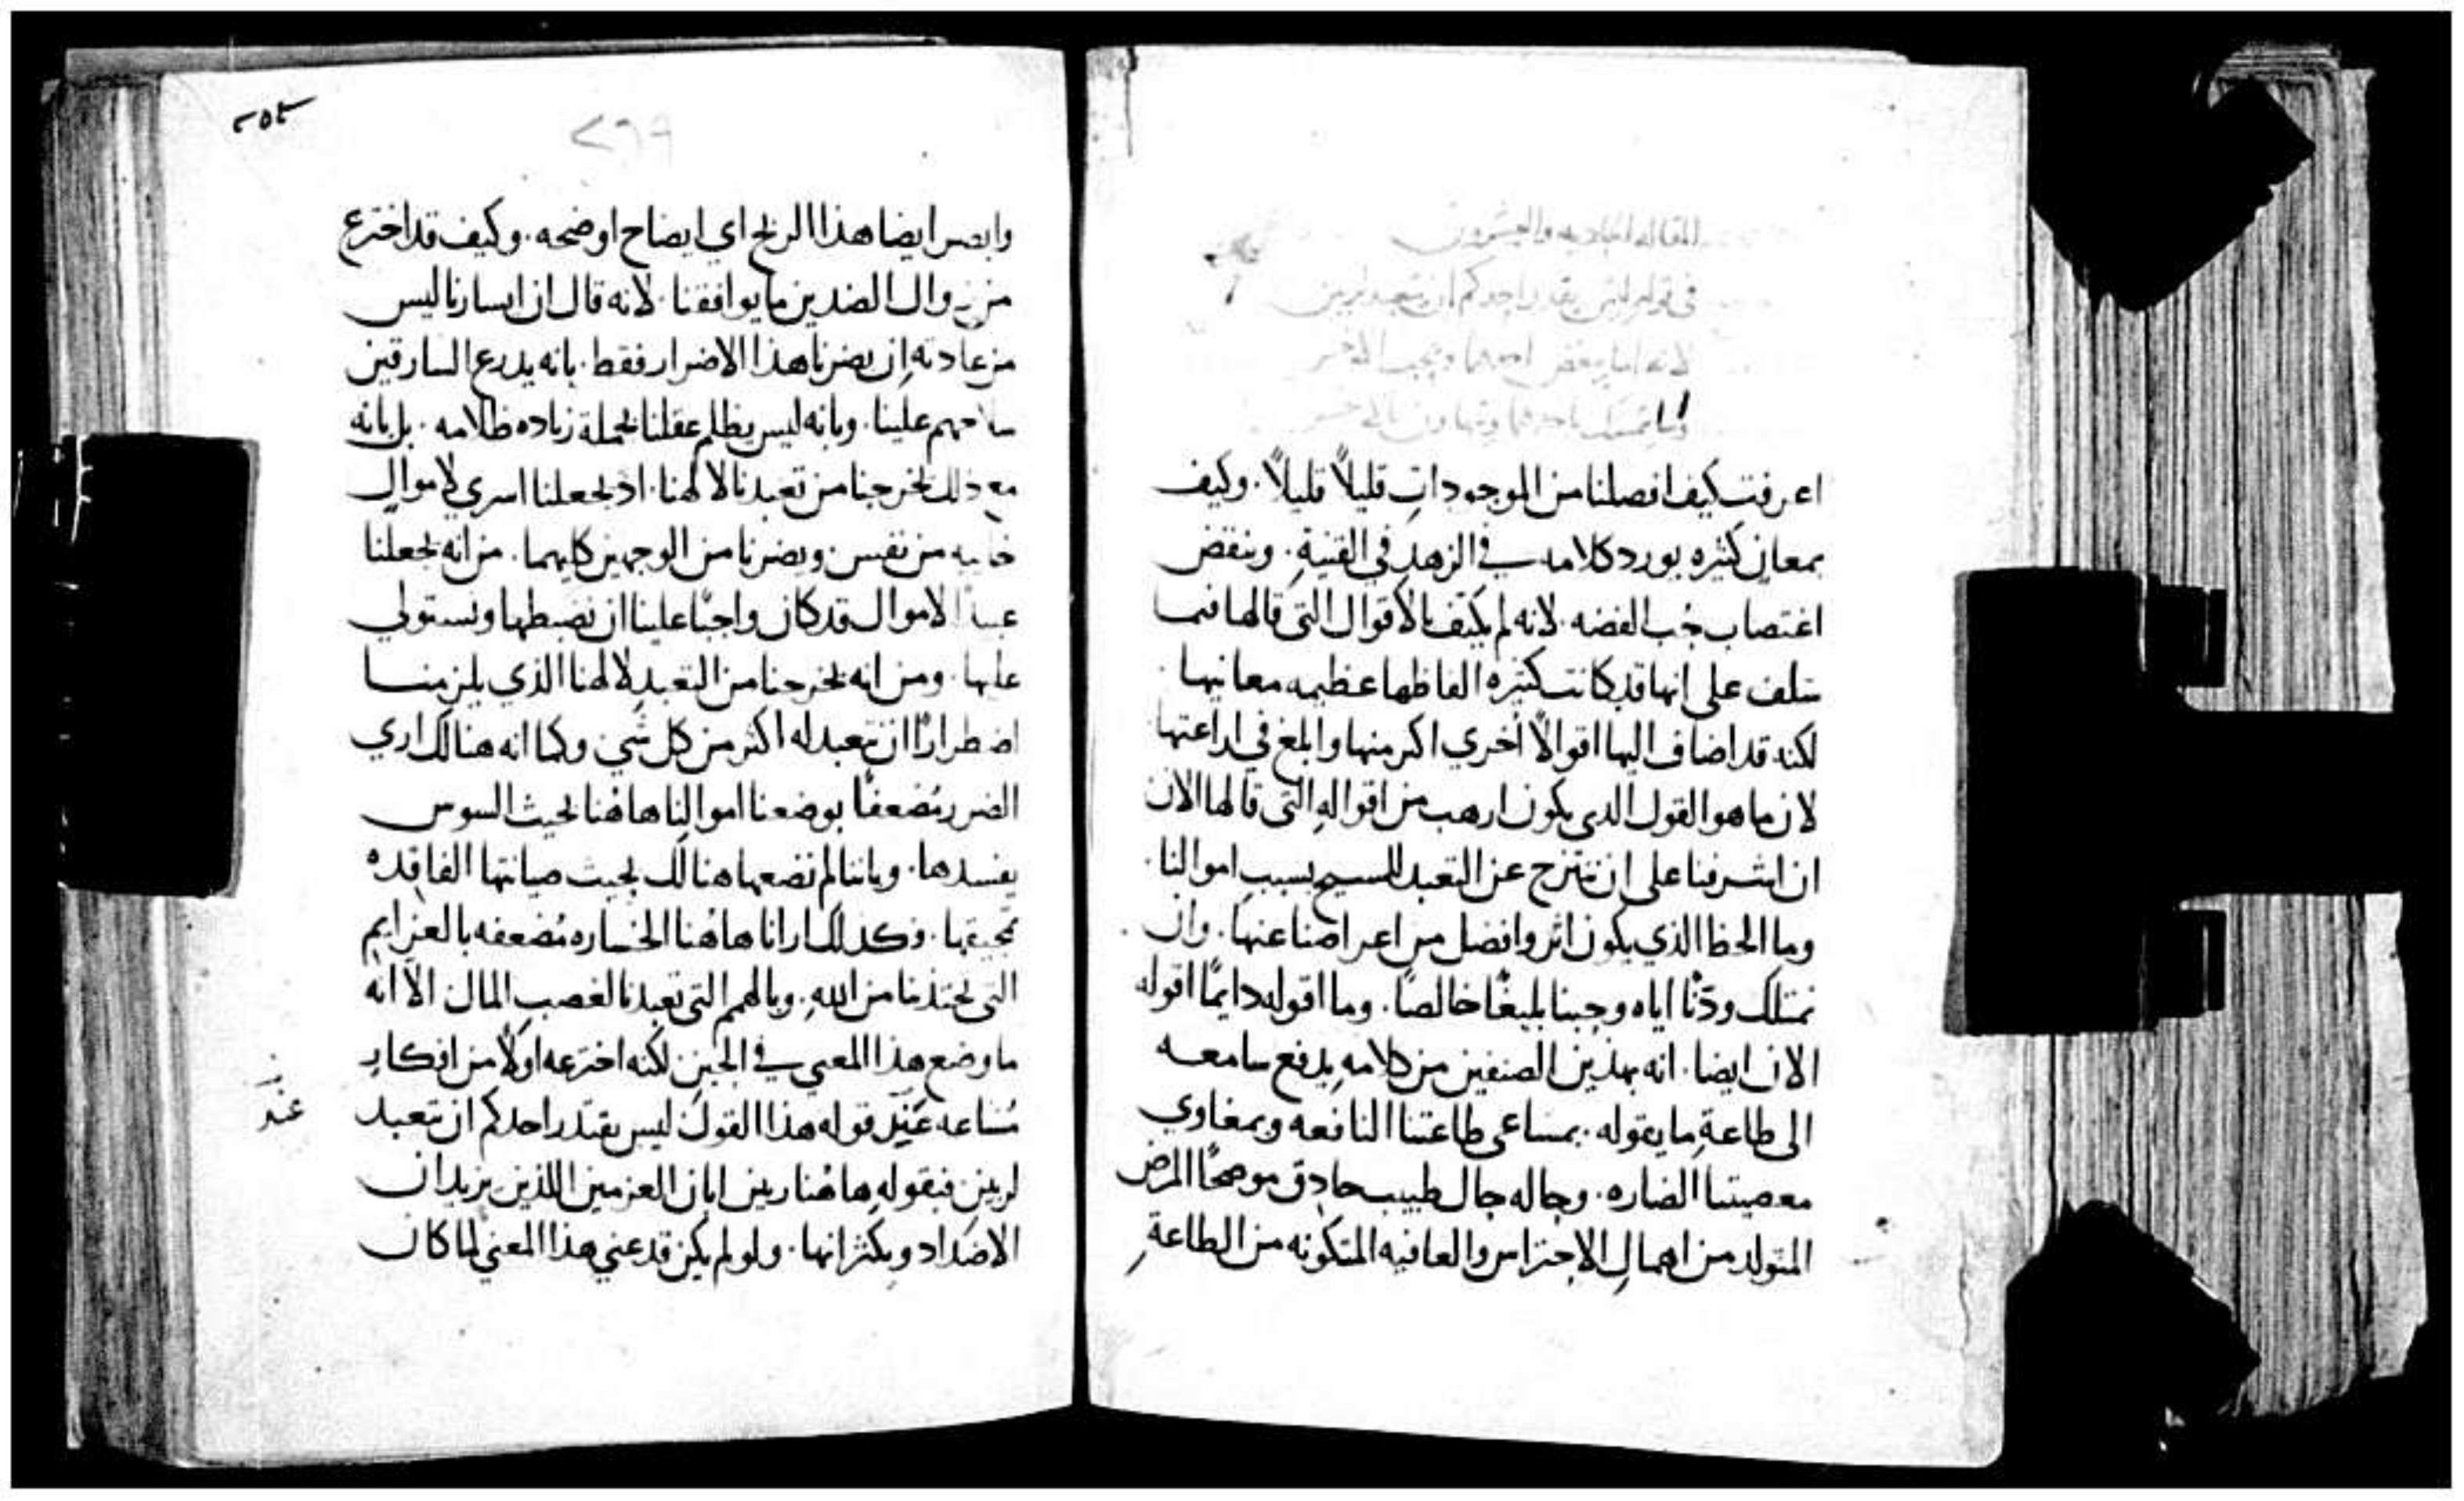 المقاله الحاديه والعشرون
في قوله ليس يقدر احدكم ان يتعبد لربين
لانه اما يبغض احدهما ويحب الاخر
واما يتمسك باحدهما ويتهاون بالاخر
اعرفت كيف افصلنا من الموجودات قليلاً قليلاً. وكيف
بمعانٍ كثيره يورد كلامه في الزهد في القنيةِ. وينقض
اغتصاب حُب الفضه. لانه لم يكتف بالاقوال التي قالها فيما
سلف على انها قد كانت كثيره الفاظها عظيمه معانيها.
لكنه قد اضاف اليها اقوالاً اخري اكبر منها وابلغ في اراعتها
لان ما هو القول الدي يكون ارهب من اقوالهِ التي قالها الان
ان اشرفنا على ان ننتزح عن التعبد للمسيح بسبب اموالنا.
وما الحظ الذي يكون اثر وافضل من اعراضنا عنها. وان
نمتلك ودّنا اياه وحبنا بليغًا خالصًا. وما اقوله دايمًا اقوله
الان ايضا. انه بهذين الصنفين من كلامهِ يدفع سامعه
الى طاعةِ ما يقوله. بمساعي طاعتنا النافعه وبمغاوي
معصيتنا الضاره. وحاله حال طبيب حادق موضحًا المرض
المتولد من اهمالِ الاحتراس والعافيه المتكونه من الطاعةِ
٢٥٢
٢٦٩
وابصر ايضا هذا الربح اي ايضاح اوضحه. وكيف قد اخترع
من زوال الضدين ما يوافقنا. لانه قال ان ايسارنا ليس
من عادته ان يضرنا هذا الاضرار فقط. بانه يدرع السارقين
سلاحهم علينا. وبانه ليس يظلم عقلنا بجملة زياده ظلامه. بل بانه
مع ذلك يخرجنا من تعبدنا لالهنا. اذ يجعلنا اسري لاموالٍ
خاليه من نفس. ويضرنا من الوجهين كليهما. من انه يجعلنا
عبيدًا لاموال قد كان واجبًا علينا ان نضبطها ونستولي
عليها. ومن انه يخرجنا من التعبدِ لالهنا الذي يلزمنا
اضطرارًا ان نتعبد له اكثر من كل شي. وكما انه هنالك اري
الضرر مُضعفًا بوضعنا اموالنا هاهُنا بحيث السوس
يفسدها. وباننا لم نضعها هنالك بحيث صيانتها الفاقده
تحيفها. فكدلك ارانا هاهُنا الخساره مُضعفه بالعزايمِ
التي تجتذبنا من اللهِ. وبالهمم التي تعبدنا لغصبِ المال الا انه
ما وضع هذا المعني في الحين لكنه اخترعه اولاً من افكارٍ
مُشاعه عند قوله هذا القول ليس يقتدر احدكم ان يتعبد
عند
لربين. فبقولهِ هاهُنا ربين ابان العزمين اللذين يريدان
الاضداد ويكثرانها. ولو لم يكن قد عني هذا المعني لما كان